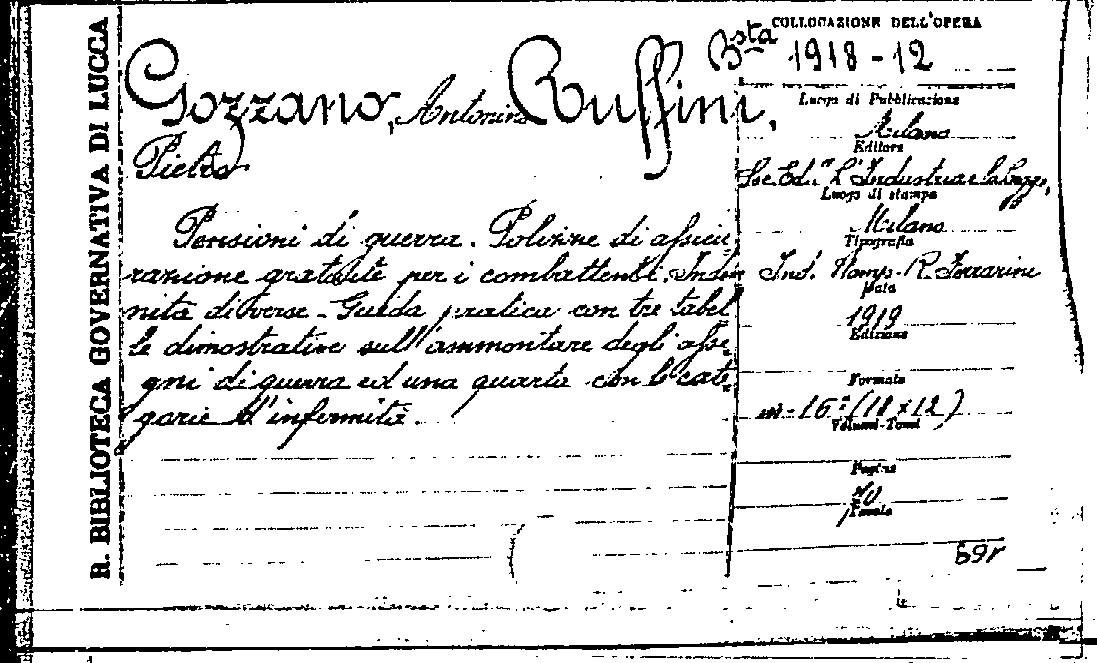 R. BIBLIOTECA GOVERNATIVA DI LUCCA
COLLOCAZIONE DELL'OPERA
Bsta 1918-12
Gozzano, Antonino Ruffini,
Pietro
Pensioni di guerra. Polizze di assicu-
razione gratuite per i combattenti. Inden-
nità diverse - Guida pratica con tre tabel-
le dimostrative sull'ammontare degli asse-
gni di guerra ed una quarta con le cate-
gorie d'infermità.
Luogo di Pubblicazione
Milano
Editore
Soc. Ed. L'Industria e
Luogo di stampa
Milano
Tipografia
Ind. Stamp. R. Ferrarini
Data
1919
Edizione
Formato
in-16° (18x12)
Volumi-Tomi
Pagine
70
Tavole
69r